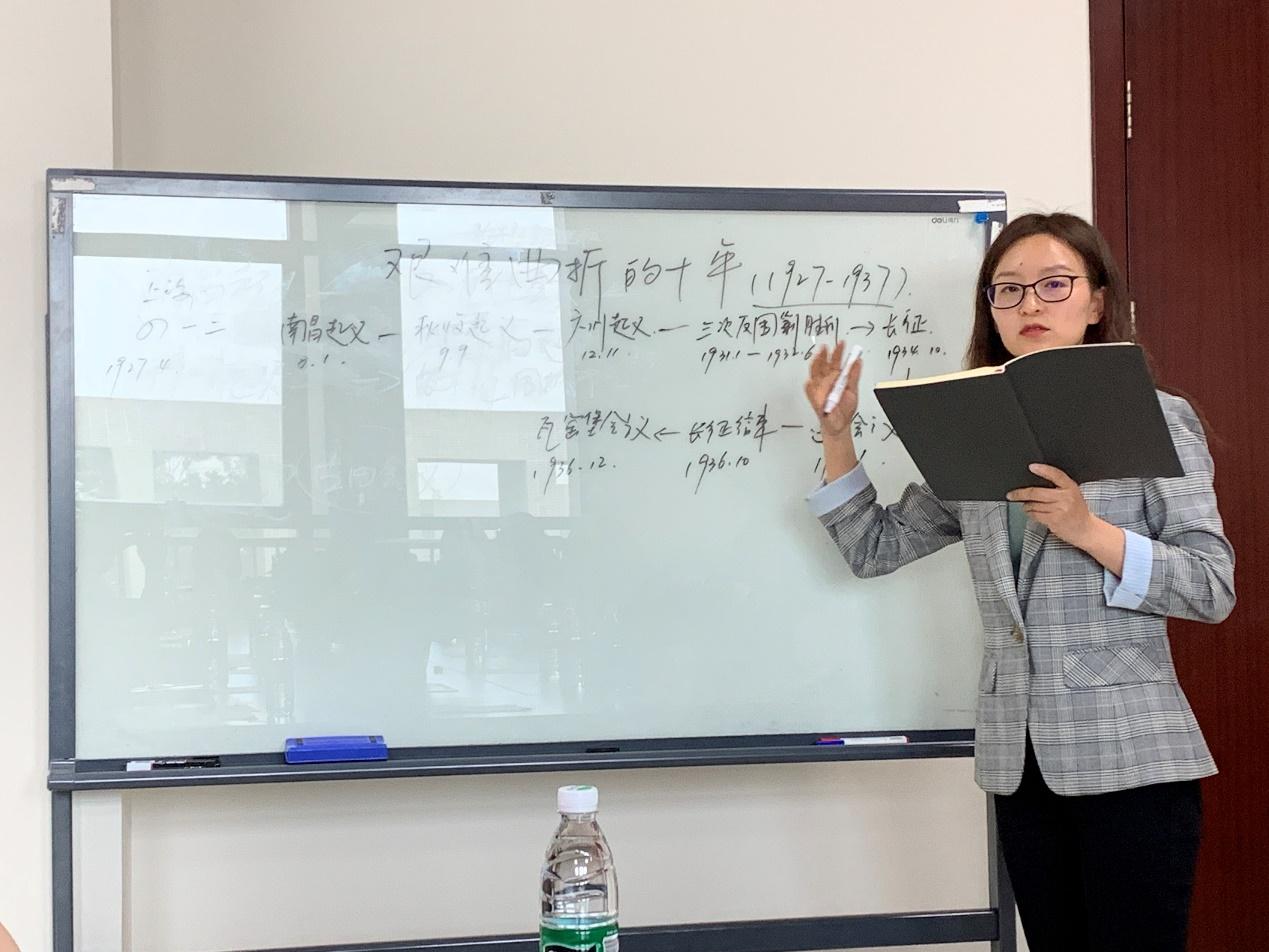 deli得力
艰难曲折的十年(1927-1937).
上海
四一二 南昌起义 — 秋收起义 — 广州起义. — 三次反围剿胜利 → 长征.
1927.4. 8.1. 9.9 12.11. 1931.1 — 1932.6 1934.10.
瓦窑堡会议 ← 长征结束 — 会议
1936.12. 1936.10